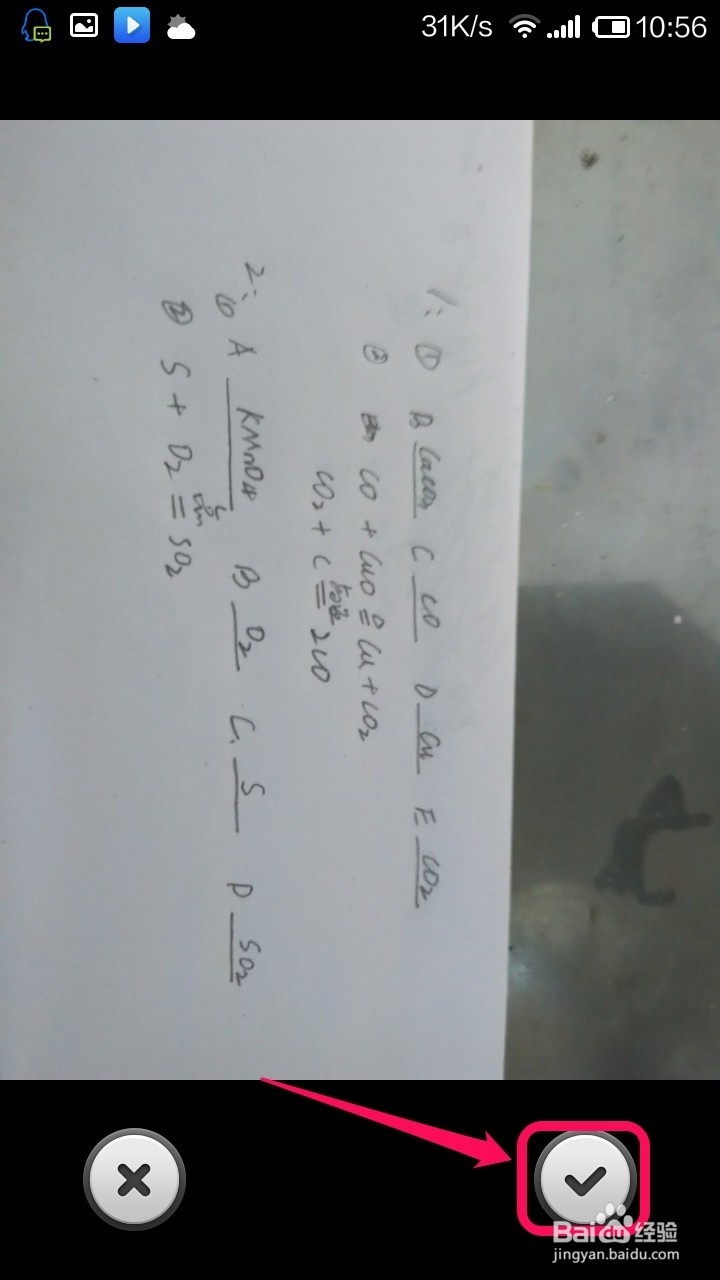 31K/s 10:56
1: ① B CaCO3 C CO D Cu E CO2
② CO + CuO =△= Cu + CO2
CO2 + C =高温= 2CO
2: ① A KMnO4 B O2 C. S D SO2
② S + O2 =点燃= SO2
Baidu 经验
jingyan.baidu.com